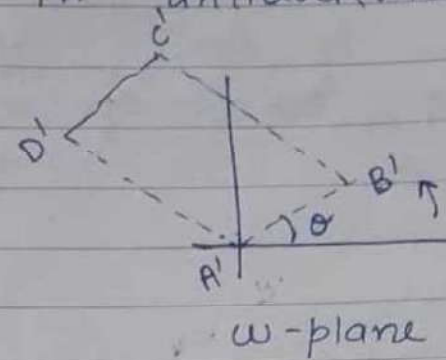 C'
D'
B'
θ
A'
w-plane